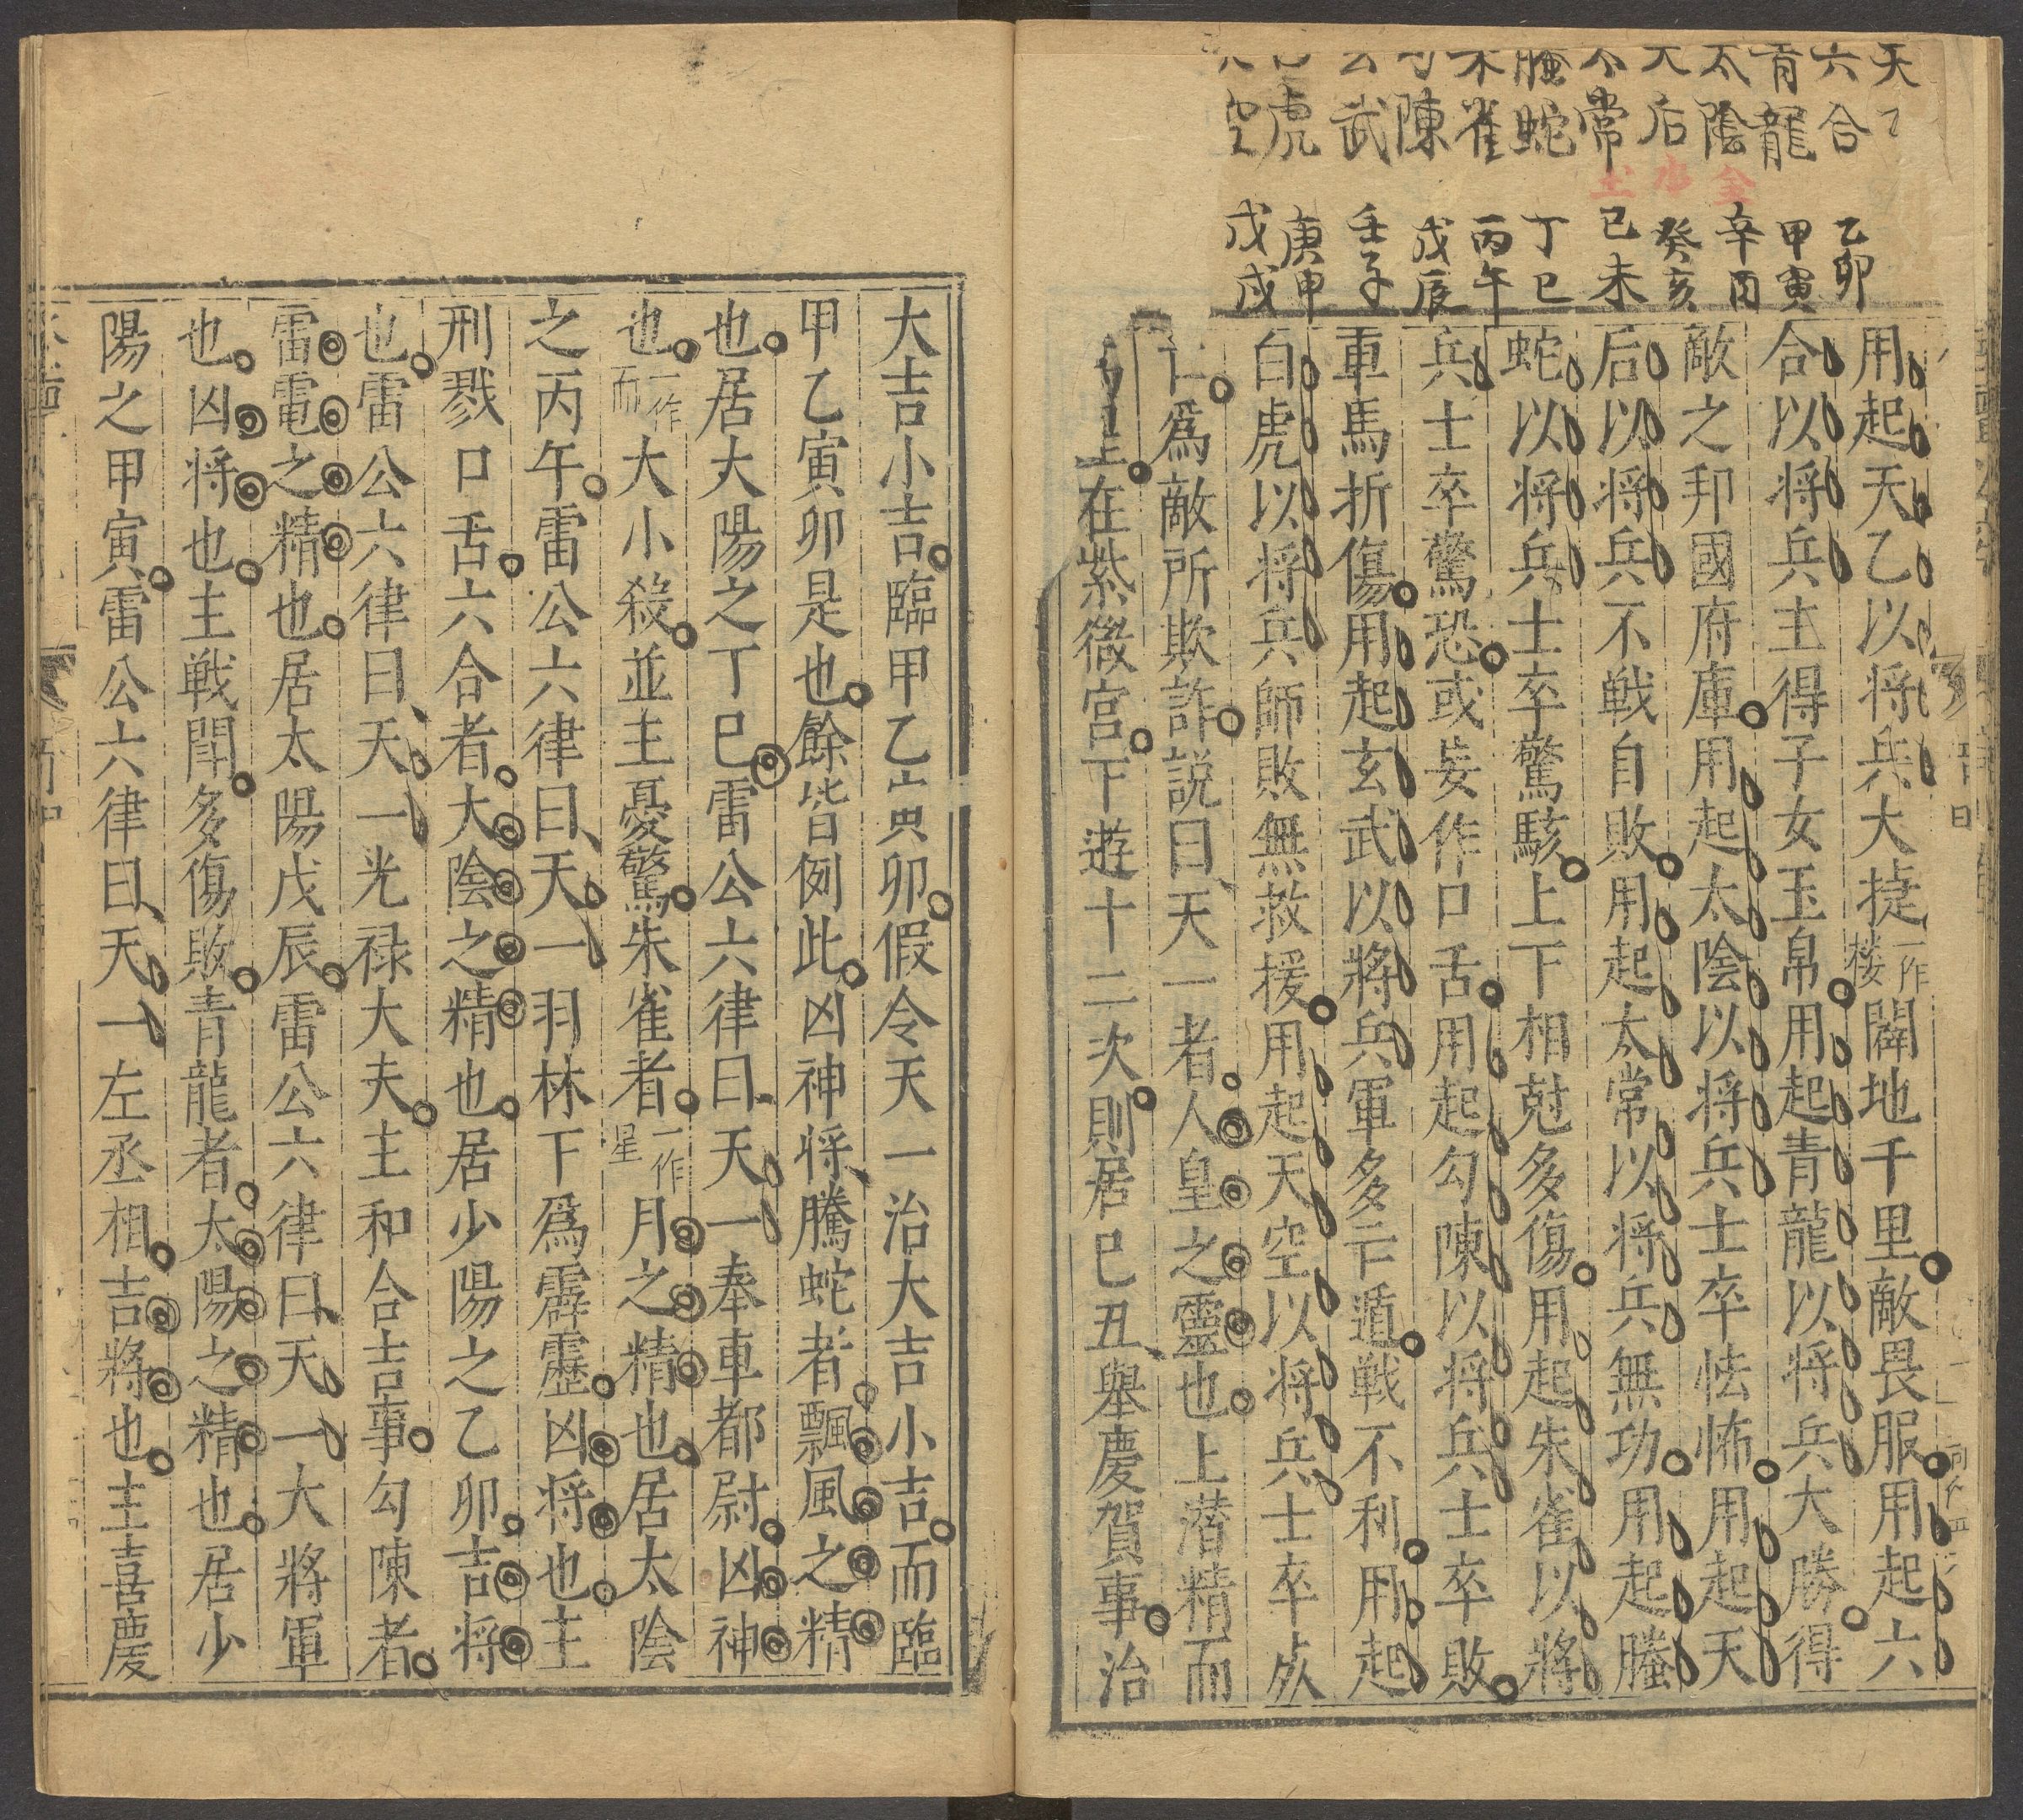 天乙　乙卯
六合　甲寅
青龍　辛酉
太陰　癸亥
天后　己未
太常　丁巳
螣蛇　丙午
朱雀　戊辰
勾陳　壬子
玄武　庚申
白虎　戊戌
天空
金
水
土
用起天乙以将兵大捷一作棲闢地千里敵畏服用起六
合以将兵主得子女玉帛用起青龍以将兵大勝得
敵之邦國府庫用起太陰以将兵士卒怯怖用起天
后以将兵不戦自敗用起太常以将兵無功用起螣
蛇以将兵士卒驚駭上下相尅多傷用起朱雀以將
兵士卒驚恐或妄作口舌用起勾陳以将兵士卒敗
車馬折傷用起玄武以將兵軍多亡遁戦不利用起
白虎以将兵師敗無救援用起天空以将兵士卒
亡爲敵所欺詐説曰天一者人皇之靈也上潛精而
在紫微宫下遊十二次則居己丑舉慶賀事治
大吉小吉臨甲乙寅卯假令天一治大吉小吉而臨
甲乙寅卯是也餘皆例此凶神将騰蛇者飄風之精
也居大陽之丁巳雷公六律曰天一奉車都尉凶神
也一作而大小殺並主憂驚朱雀者一作星月之精也居太陰
之丙午雷公六律曰天一羽林下爲霹靂凶将也主
刑戮口舌六合者大陰之精也居少陽之乙卯吉将
也雷公六律曰天一光禄大夫主和合吉事勾陳者
雷電之精也居太陽戊辰雷公六律曰天一大將軍
也凶将也主戦鬪多傷敗青龍者太陽之精也居少
陽之甲寅雷公六律曰天一左丞相吉將也主喜慶